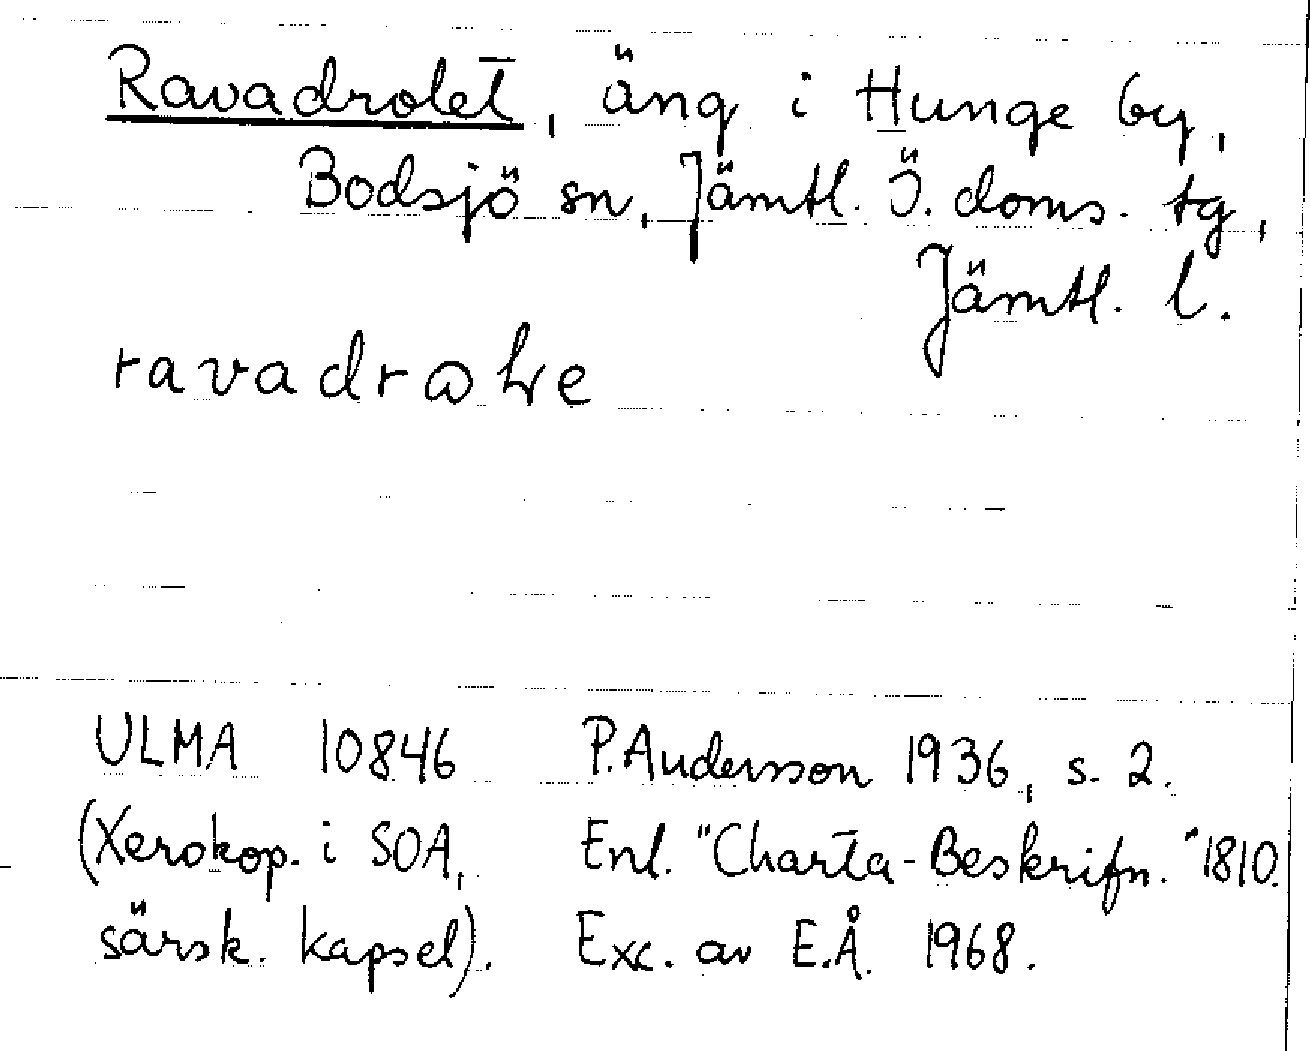 Ravadrolet, äng i Hunge by,
Bodsjö sn, Jämtl. Ö. doms. tg,
Jämtl. l.
ULMA 10846 P. Andersson 1936, s. 2.
(Xerokop. i SOA, Enl. "Charta-Beskrifn." 1810.
särsk. kapsel). Exc. av E.Å. 1968.